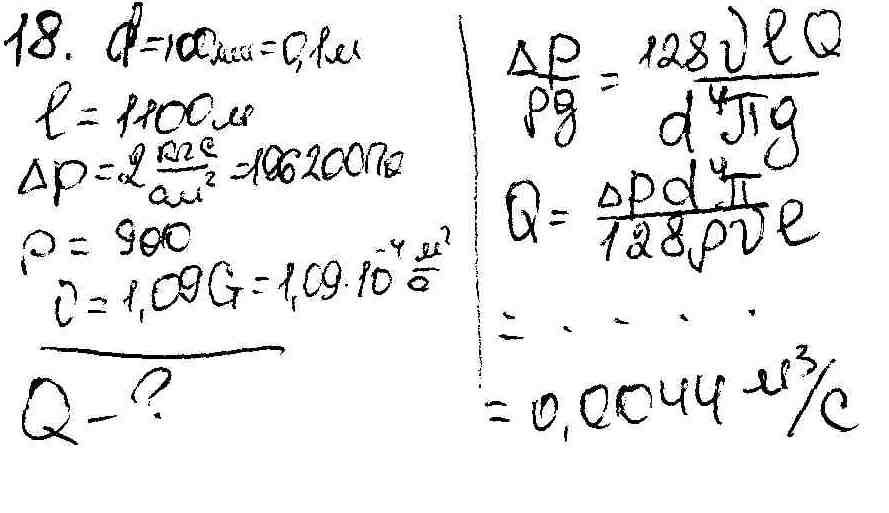 18. d=100мм=0,1м
l=1100м
Δp=2 кгс/см²=196200Па
ρ= 900
ν=1,09 Ст=1,09·10⁻⁴ м²/с
Q-?
Δp/ρg = 128νlQ/d⁴πg
Q= Δpd⁴π/128ρνl
= . . . .
= 0,0044 м³/с